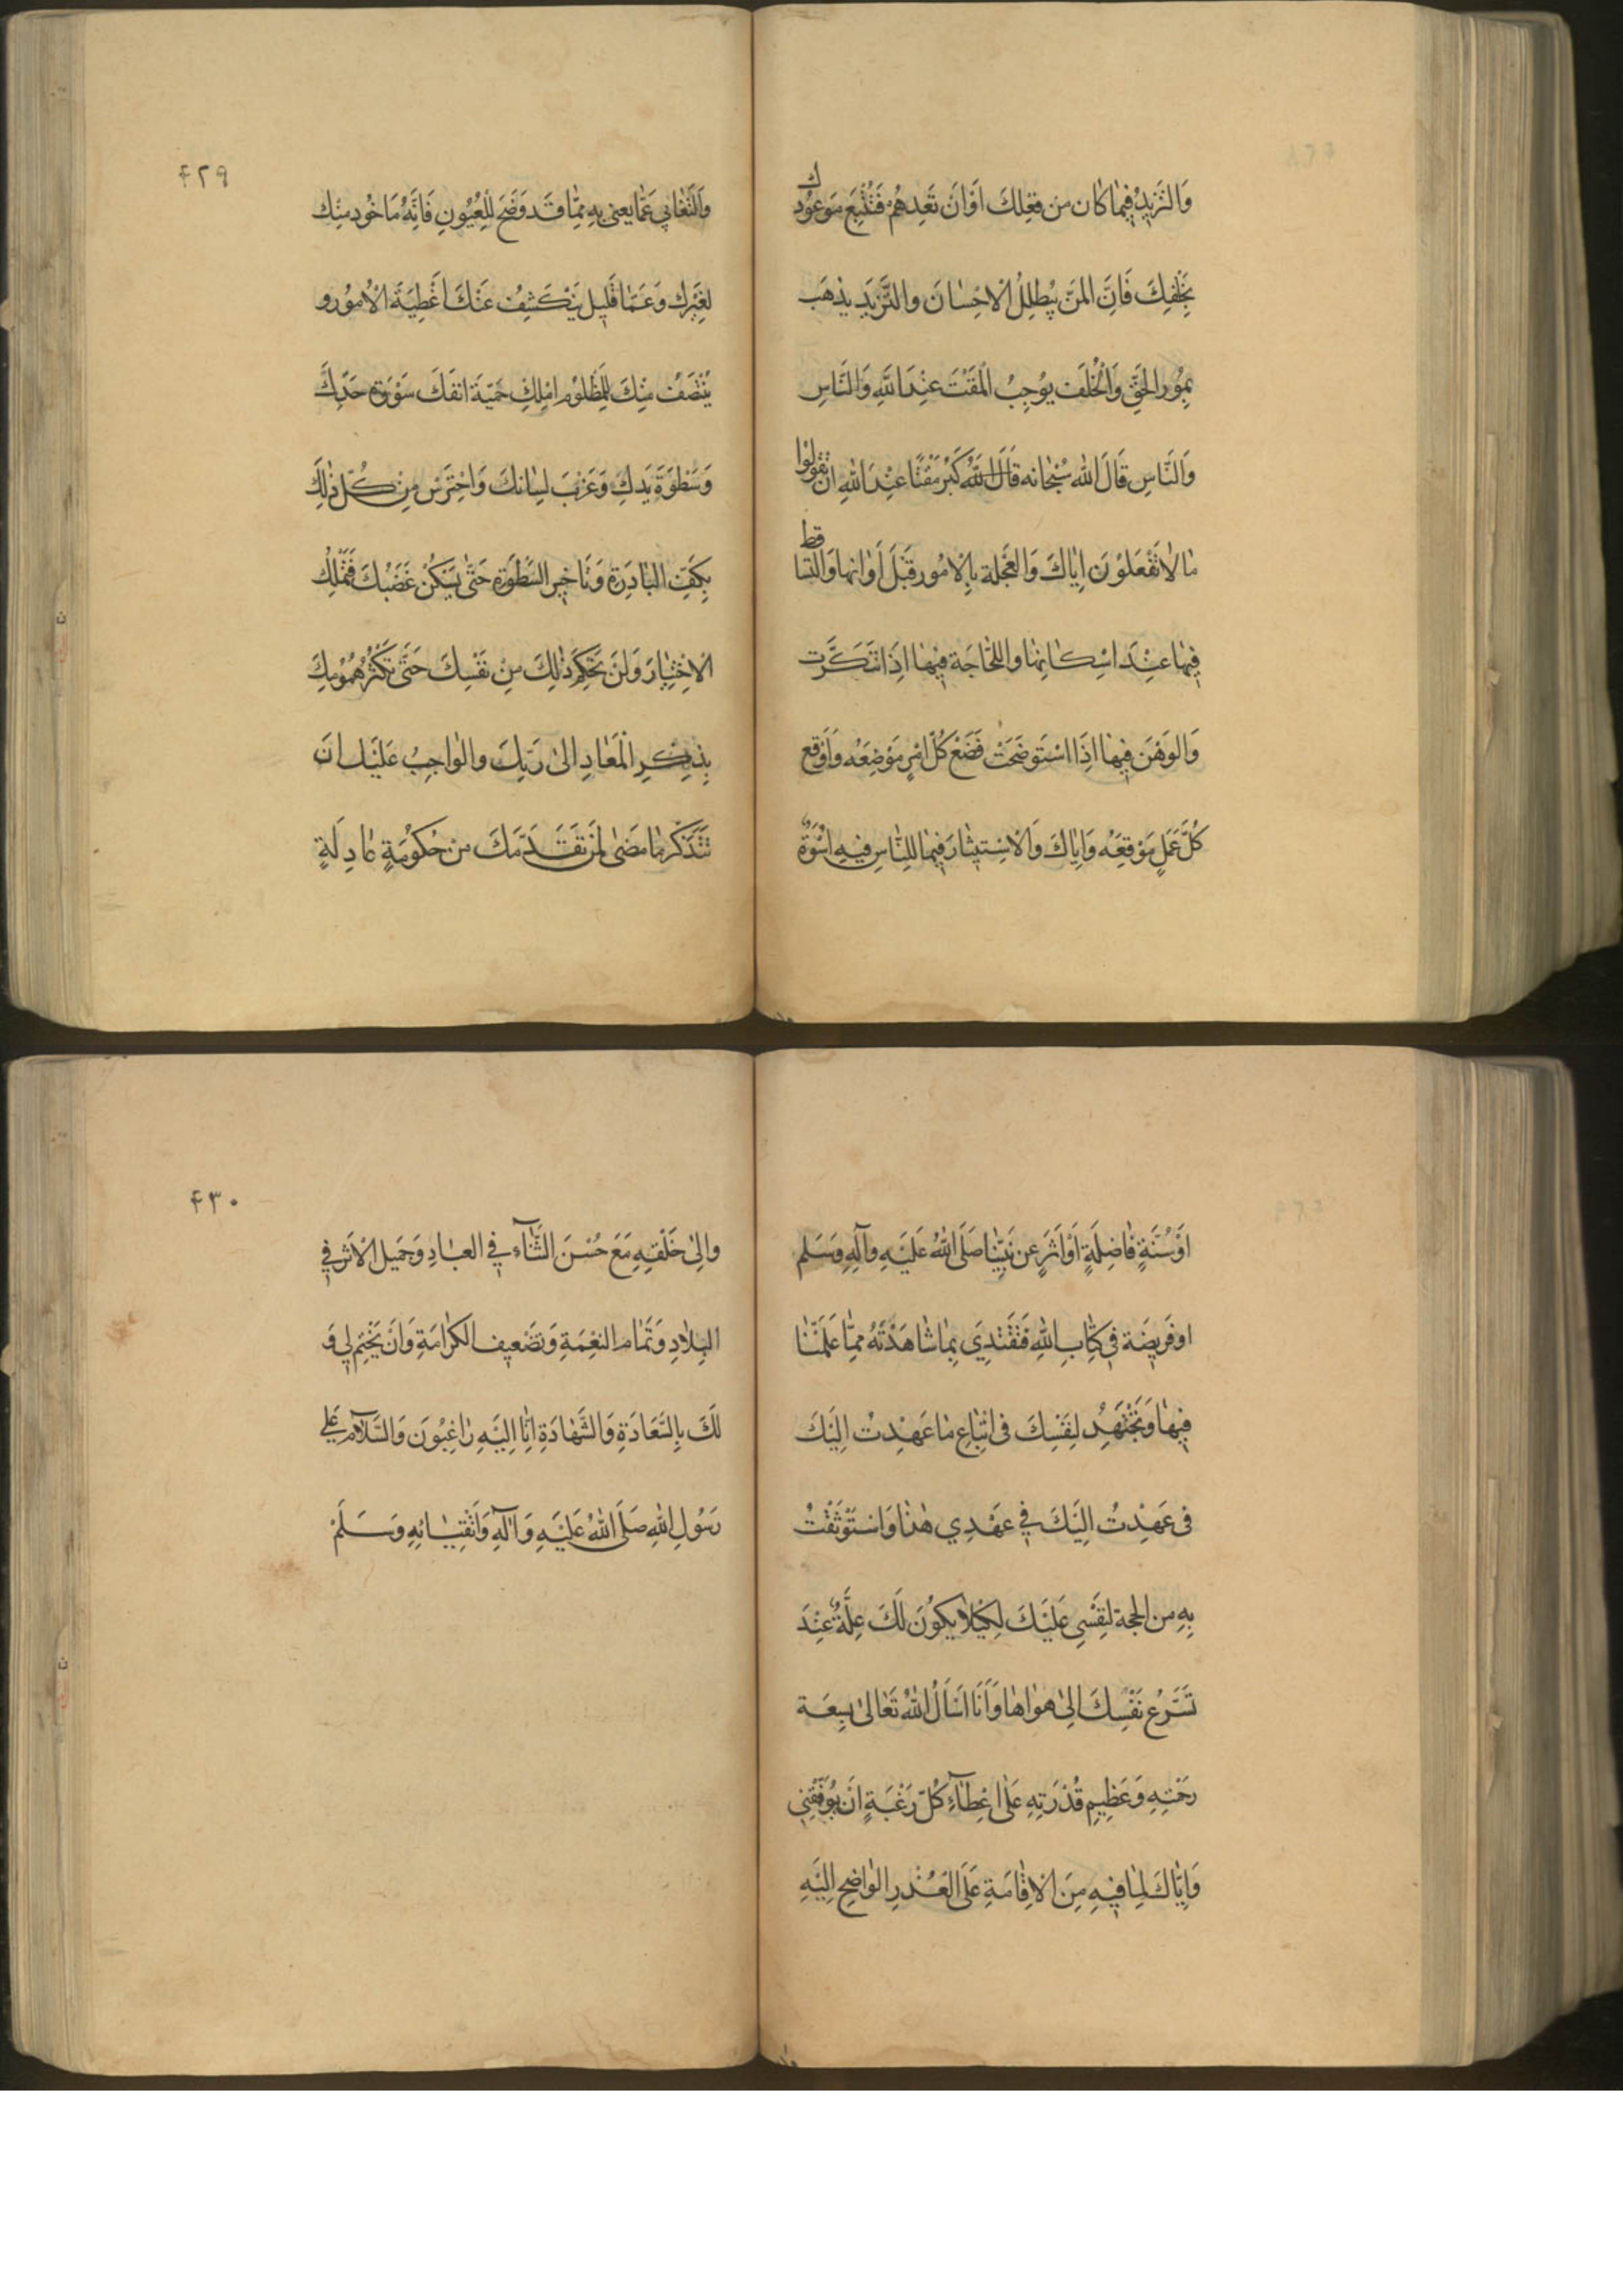 وَالتَّزَيُّدَ فِيمَا كَانَ مِن فِعْلِكَ اَوْ اَنْ تَعِدَهُمْ فَتُتْبِعَ مَوْعُودَك
بِخُلْفِكَ فَاِنَّ المَنَّ يُبْطِلُ الْاِحْسَانَ وَالتَّزَيُّدَ يَذْهَبُ
بِنُورِ الحَقِّ وَالْخُلْفَ يُوجِبُ الْمَقْتَ عِنْدَ اللهِ وَالنَّاسِ
وَالنَّاسِ قَالَ الله سُبْحَانه قَالَ اللهُ كَبُرَ مَقْتًا عِنْدَ اللهِ اَنْ تَقُولُوا
مَا لَا تَفْعَلُوْنَ اِيَّاكَ وَالعَجَلَة بِالْاُمُورِ قَبْلَ اَوَانِهَا وَالتَّسَاقط
فِيهَا عِنْدَ اِمْكَانِهَا وَاللَّجَاجَة فِيهَا اِذَا تَنَكَّرَت
وَالوَهْنَ فِيهَا اِذَا اسْتَوضَحَتْ فَضَعْ كُلَّ اَمْرٍ مَوْضِعَه وَاَوْقِع
كُلَّ عَمَلٍ مَوْقِعَه وَاِيَّاكَ وَالْاِسْتِيثَارَ فِيمَا لِلنَّاسِ فِيهِ اُسْوَةٌ
۴۲۹
وَالتَّغَابِي عَمَّا يعنى بِهِ مِمَّا قَد وَضَحَ لِلْعُيُونِ فَاِنَّهُ مَاخُوذ مِنْك
لِغَيْرِك وَعَمَّا قَلِيل يَنْكَشِفُ عَنْكَ اَغْطِيَةُ الْاُمُورِ و
يُنْتَصَفُ مِنْكَ لِلْمَظْلُوْمِ اَمْلِكْ حَمِيَّةَ اَنفِكَ سَوْرَةَ حَدِّكَ
وَسَطْوَةَ يَدِكَ وَغَرْبَ لِسَانِكَ وَاحْتَرِسْ مِنْ كُلِّ ذٰلِكَ
بِكَفِّ البَادِرَةِ وَتَاخِيرِ السَّطْوَةِ حَتَّى يَسْكُنَ غَضَبُكَ فَتَمْلِكَ
الْاِخْتِيَارَ وَلَنْ تَحْكُمَ ذٰلِكَ مِنْ نَفْسِكَ حَتَّى تَكْثُرَ هُمُومُكَ
بِذِكْرِ الْمَعَادِ اِلىٰ رَبِّكَ وَالوَاجِبُ عَلَيْكَ اَنْ
تَتَذَكَّرَ مَا مَضىٰ لِمَنْ تَقَدَّمَكَ مِنْ حُكُومَةٍ عَادِلَةٍ
اَوْ سُنَّةٍ فَاضِلَةٍ اَوْ اَثَرٍ عَن نَبِيِّنَا صَلَّى اللهُ عَلَيْهِ وَآلِهِ وَسَلم
اَو فَرِيضَة فِي كِتَابِ اللهِ فَتَقْتَدِي بِمَا شَاهَدْتَهُ مِمَّا عَمِلْنَا
فِيهَا وَتَجْتَهِدُ لِنَفْسِكَ فِى اتِّبَاعِ مَا عَهِدْتُ اِلَيْكَ
فى عَهِدْتُ اِلَيْكَ فِي عَهْدِي هٰذَا وَاسْتَوْثَقْتُ
بِهِ مِن الحجة لِنَفْسِى عَلَيْكَ لِكَيْلَا يَكُونَ لَكَ عِلَّةٌ عِنْدَ
تَسَرُّعِ نَفْسِكَ اِلىٰ هَوَاهَا وَاَنَا اَسْاَلُ اللهَ تَعَالىٰ بِسِعَة
رَحْمَتِهِ وَعَظِيمِ قُدْرَتِهِ عَلىٰ اِعْطَآءِ كُلِّ رَغْبَةٍ اَنْ يُوَفِّقَنِي
وَاِيَّاكَ لِمَا فِيهِ مِنَ الْاِقَامَةِ عَلَى العُذْرِ الوَاضِحِ اِلَيْهِ
۴۳۰
وَاِلىٰ خَلْقِهِ مَعَ حُسْنِ الثَّنَآءِ فِي العِبَادِ وَجَمِيلِ الْاَثَرِ فِي
البِلَادِ وَتَمَامِ النِّعْمَةِ وَتَضْعِيفِ الكَرَامَةِ وَاَنْ يَخْتِمَ لِي وَ
لَكَ بِالسَّعَادَةِ وَالشَّهَادَةِ اِنَّا اِلَيْهِ رَاغِبُونَ وَالسَّلَامُ عَلى
رَسُولِ اللهِ صَلَّى اللهُ عَلَيْهِ وَآلِهِ وَاَتْقِيَائِهِ وَسَلَّمْ